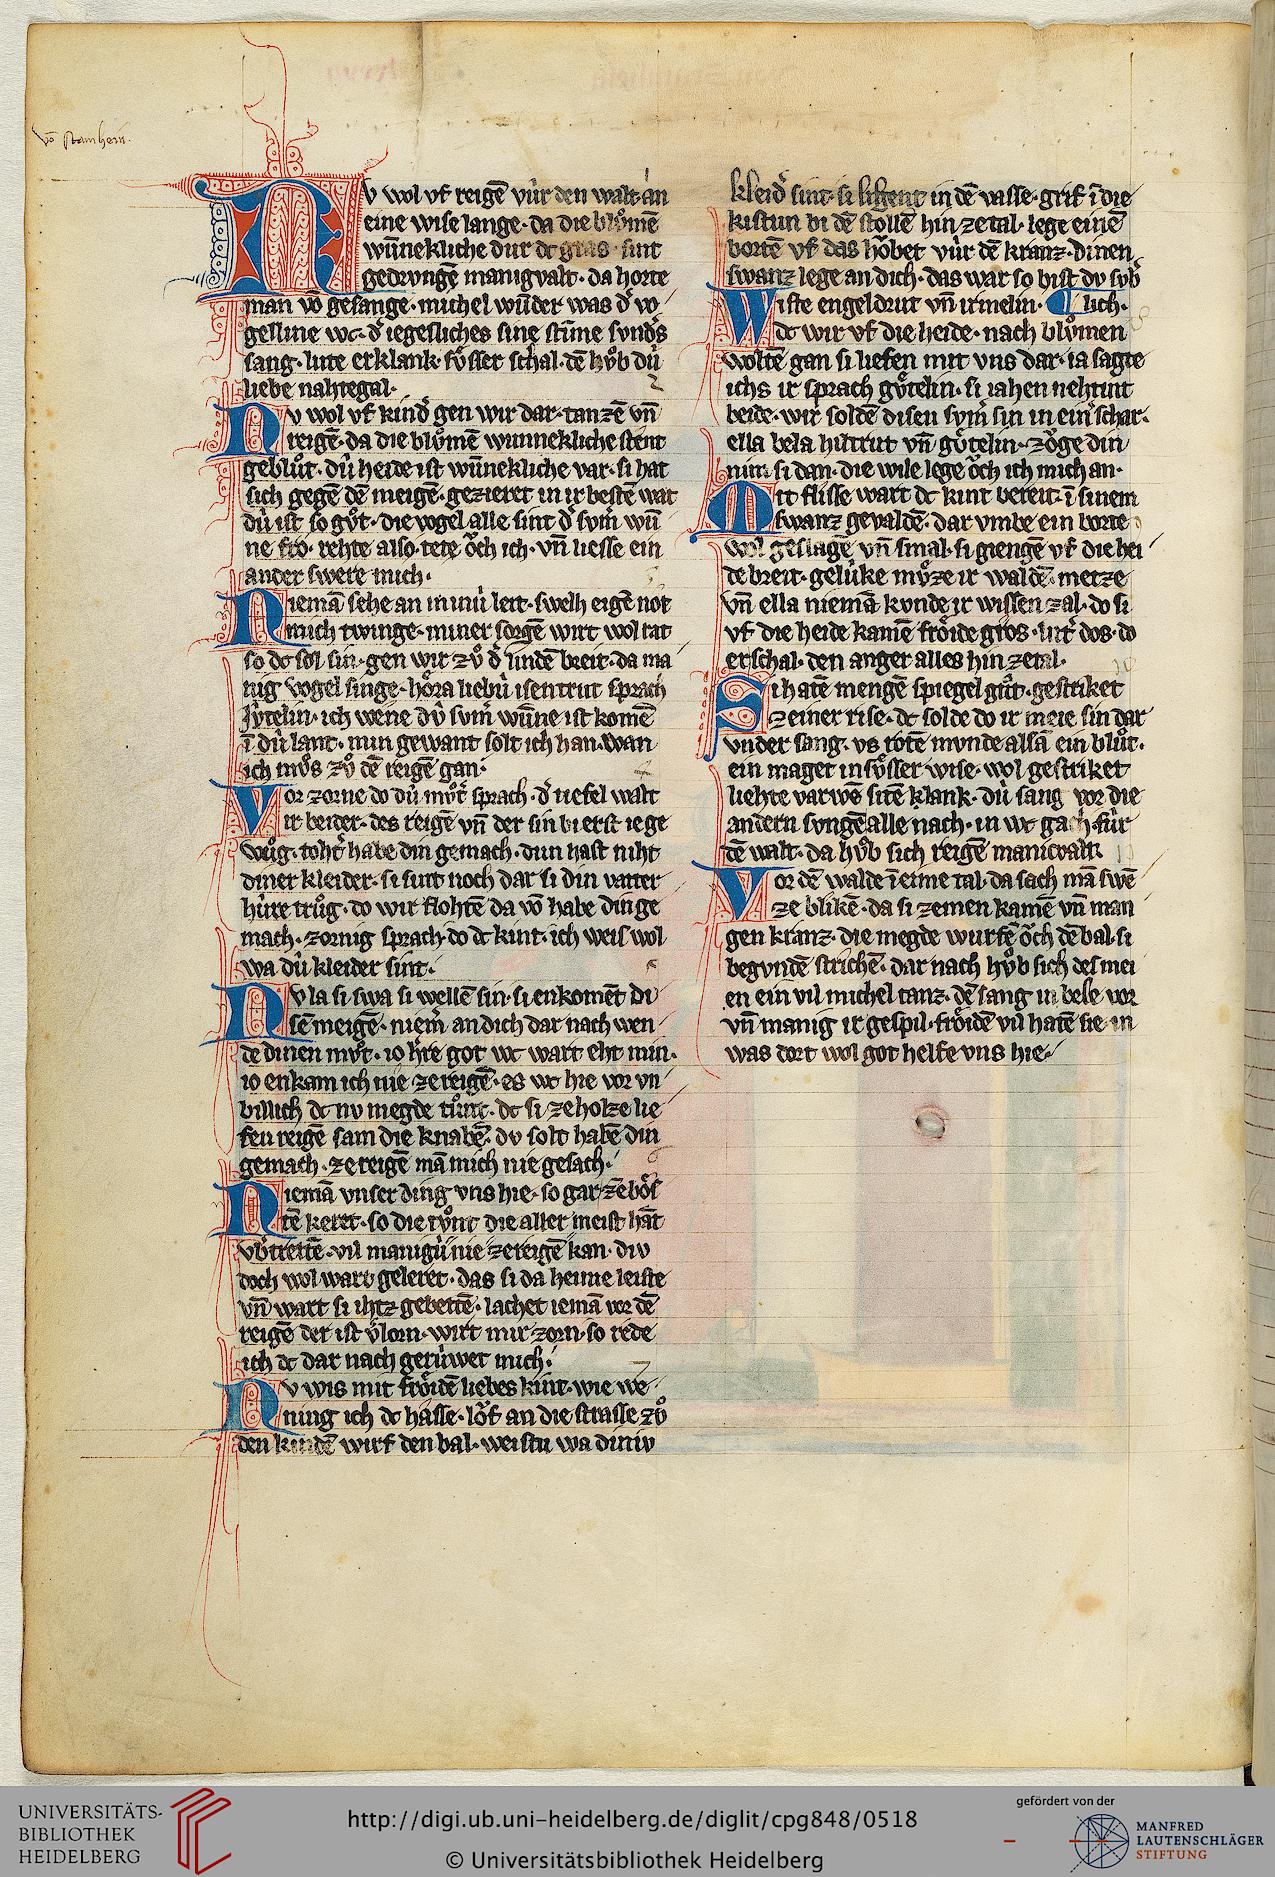 vō stamhein.
NV wol vf reigē vúr den walt an
eine wise lange · da die blůmē
wūnekliche dur dc gras sint
gedrvngē manigvalt · da horte
man vō gesange · michel wūder was d̾ vo
gelline wc · d̾ iegesliches sine stīme svnd̾s
sang · lute erklank · sv̊sser schal · dē hůb dú
liebe nahtegal ·
NV wol vf kind̾ gen wir dar · tanzē vn̄
reigē · da die blůmē wunnekliche stent
geblůt · dú heide ist wūnekliche var · si hat
sich gegē dē meigē · gezieret in ir bestē wat
dú ist so gůt · die vogel alle sint d̾ svm̄ wū
ne fro · rehte also tete ǒch ich · vn̄ liesse ein
ander swere mich ·
Niemā sehe an minú leit · swelh eigē not
mich twinge · miner sorgē wirt wol rat
so dc sol sin · gen wir zů d̾ lindē breit · da ma
nig vogel singe · hǒra liebú isentrut sprach
Jútelin · ich wene dú svm̄ wūne ist komē
ī dú lant · min gewant solt ich han · wan
ich můs zů dē reigē gan ·
Vor zorne do dú můt̾ sprach · d̾ tiefel walt
ir beider · des reigē vn̄ der sin bi erst ie ge
wůg · toht̾ habe din gemach · dun hast niht
diner kleider · si sint noch dar si din vatter
húre trůg · do wir flohtē da vō habe din ge
mach · zornig sprach do dc kint · ich weis wol
wa dú kleider sint ·
NV la si swa si wellē sin · si enkomēt di
sē meigē · niem̄ an dich dar nach wen
de dinen můt · io h̾re got wc wart eht min ·
io enkam ich nie ze reigē · es wc hie vor vn
billich dc nv megde tůnt · dc si ze holze lie
fen reigē sam die knabē · dv solt habē din
gemach · ze reigē mā mich nie gesach ·
Niemā vnser ding vns hie · so gar zē bǒs
tē keret · so die tůnt die aller meist hāt
vb̾trettē · vil manigú nie ze reigē kan · div
doch wol wart geleret · das si da heime leiste
vn̄ wart si ihtz gebettē · lachet iemā vor dē
reigē der ist v̾lorn · wirt mir zorn · so rede
ich dc dar nach gerúwet mich ·
NV wis mit frǒidē liebes kint · wie we
ning ich dc hasse · lǒf an die strasse zů
den kindē wirf den bal · weistu wa diniv
kleid̾ sint · si ligent in dē vasse · grif ī die
kistun bi dē stollē hin ze tal · lege einē
bortē vf das hǒbet vúr dē kranz · dinen
swanz lege an dich · das war so bist dv svb̾
Wiste engeldrut vn̄ irmelin · lich ·
dc wir vf die heide · nach blůmen
woltē gan si liefen mit vns dar · ia sagte
ichs ir sprach gůtelin · si iahen nehtint
beide · wir soldē disen svm̄ sin in ein schar ·
ella bela hiltrut vn̄ gůtelin · zǒge din
nim si dan · die wile lege ǒch ich mich an ·
Mit flisse wart dc kint bereit · ī sinem
swanz gevaldē · dar vmbe ein borte
wol geslagē vn̄ smal · si giengē vf die hei
de breit · gelúke můze ir waldē · metze
vn̄ ella niemā kvnde ir wissen zal · do si
vf die heide kamē frǒide gros · do
erschal · den anger alles hin ze tal ·
Si hatē mengē spiegel gůt · gestriket
ze einer rise · dc solde do ir meie sin dar
vnder sang · vs rotē mvnde alsā ein blůt ·
ein maget in sůsser wise · wol gestriket
liehte varwē sitē klank · dú sang vor die
andern svngē alle nach · in wc gach · fúr
dē walt · da hůb sich reigē manicvalt
Vor dē walde ī eime tal · da sach mā swē
ze blikē · da si zemen kamē vn̄ man
gen kranz · die megde wurfē ǒch dē bal · si
begvndē strichē · dar nach hůb sich des mei
en ein vil michel tanz · dē sang in bele vor
vn̄ manig ir gespil · frǒidē vil hatē sie · in
was dort wol got helfe vns hie ·
UNIVERSITÄTS-
BIBLIOTHEK
HEIDELBERG
http://digi.ub.uni-heidelberg.de/diglit/cpg848/0518
© Universitätsbibliothek Heidelberg
gefördert von der
MANFRED
LAUTENSCHLÄGER
STIFTUNG